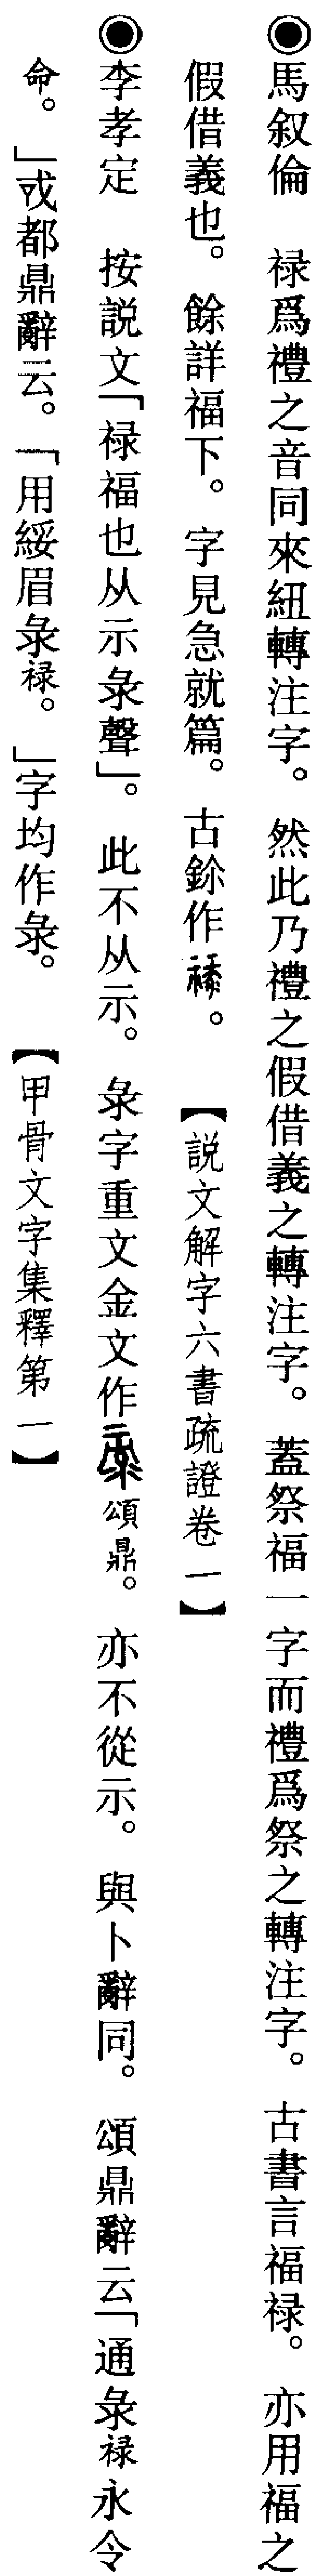 ◉馬叙倫　禄爲禮之音同來紐轉注字。然此乃禮之假借義之轉注字。蓋祭福一字而禮爲祭之轉注字。古書言福禄。亦用福之
假借義也。餘詳福下。字見急就篇。古鉨作。【説文解字六書疏證卷一】
◉李孝定　按説文「禄福也从示彔聲」。此不从示。彔字重文金文作頌鼎。亦不從示。與卜辭同。頌鼎辭云「通彔禄永令
命。」戓都鼎辭云。「用綏眉彔禄。」字均作彔。【甲骨文字集釋第一】